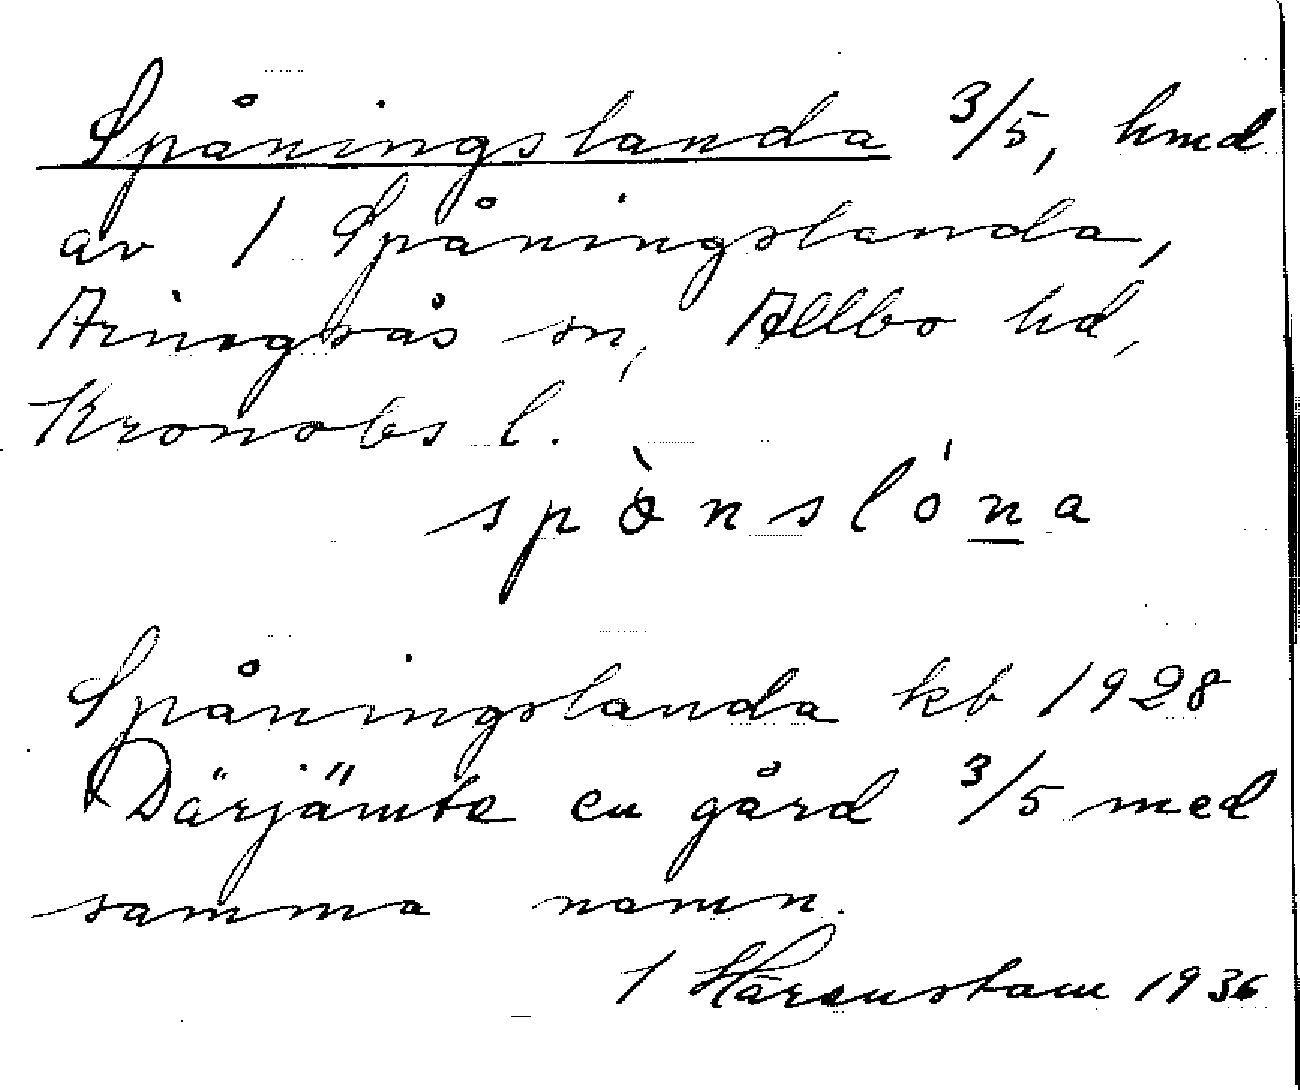 Spåningslanda 3/5, hmd
av 1 Spåningslanda,
Aringsås sn, Allbo hd,
Kronobs l.
spånslóna
Spåningslanda kb 1928
Därjämte en gård 3/5 med
samma namn.
1 Härenstam 1936